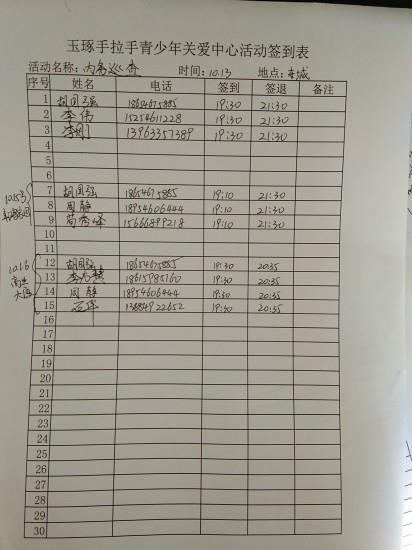 玉琢手拉手青少年关爱中心活动签到表
活动名称: 巡查 时间: 10.13 地点: 城
序号 姓名 电话 签到 签退 备注
1 胡国强 18654675885 19:30 21:30
2 李伟 15254611228 19:30 21:30
3 李刚 13963357389 19:30 21:30
4
5
6
7 胡国强 18654675885 19:10 21:30
8 周静 18954606444 19:10 21:30
9 苟秀峰 15666899218 19:10 21:30
10
11
12 胡国强 18654675885 19:30 20:35
13 18615985160 19:30 20:35
14 周静 18954606444 19:30 20:35
15 13884922652 19:30 20:35
16
17
18
19
20
21
22
23
24
25
26
27
28
29
30